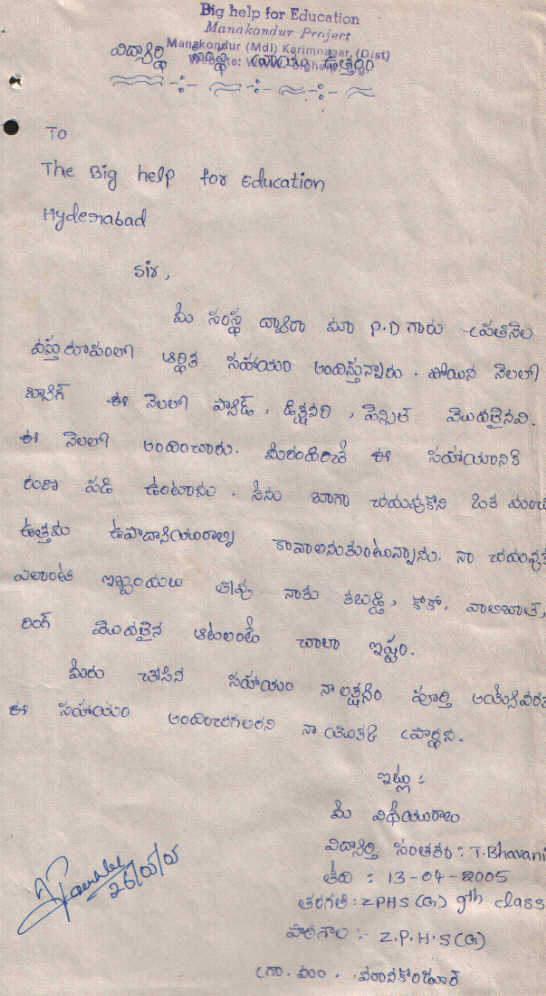 Big help for Education
Manakondur Project
Manakondur (Mdl) Karimnagar, (Dist)
విద్యార్థి సహాయం ఉత్తరం
To
The Big help for Education
Hyderabad
Sir,
మీ సంస్థ ద్వారా మా P.D గారు ప్రతినెల
వస్తు రూపంలో ఆర్థిక సహాయం అందిస్తున్నారు. పోయిన నెలలో
ఈ నెలలో ప్యాడ్, డిక్షనరి, పెన్సిల్ మొదలైనవి.
ఈ నెలలో అందించారు. ఈ సహాయానికి
రుణ పడి ఉంటాను. నేను బాగా చదువుకొని ఒక మంచి
ఉత్తమ ఉపాధ్యాయురాల్ని కావాలనుకుంటున్నాను. నా చదువుకు
ఎలాంటి ఇబ్బందులు లేవు నాకు కబడ్డి, కోకో, వాలిబాల్,
రింగ్ మొదలైన ఆటలంటే చాలా ఇష్టం.
మీరు చేసిన సహాయం నా లక్ష్యం పూర్తి అయ్యేవరకు
ఈ సహాయం అందించగలరని నా యొక్క ప్రార్థన.
ఇట్లు :
మీ విధేయురాలు
విద్యార్థి సంతకం : T. Bhavani
తేది : 13-04-2005
తరగతి : ZPHS (G) 9th class
పాఠశాల :- Z.P.H.S (G)
గ్రా. మం. మానకొండూర్